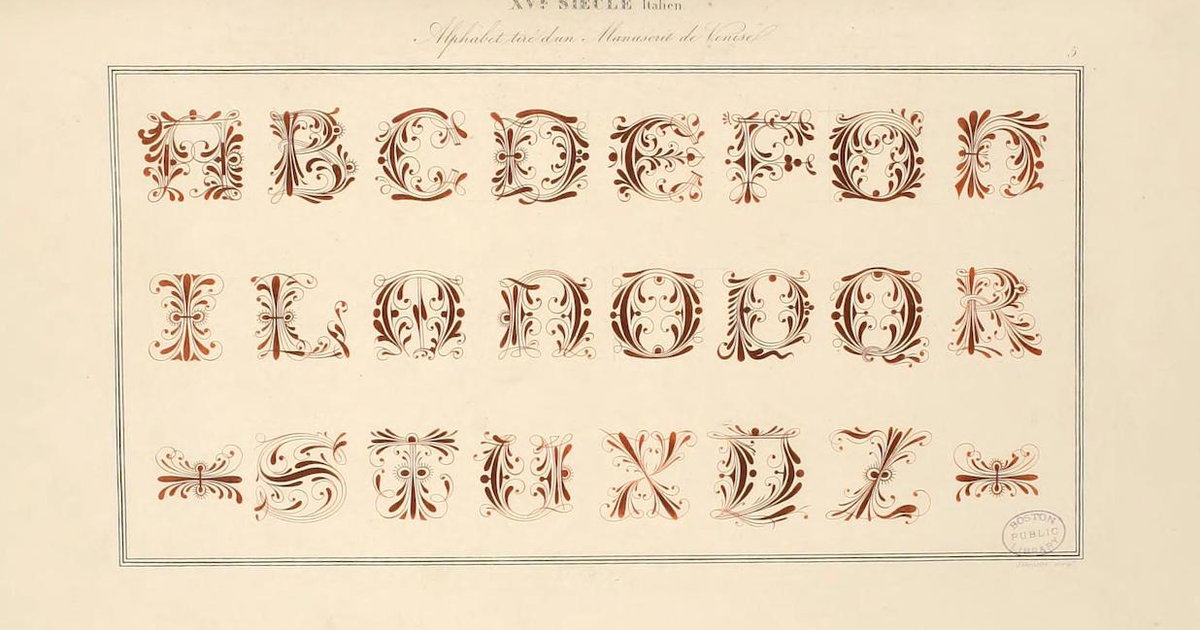 XVIe SIÈCLE Italien
Alphabet tiré d'un Manuscrit de Venise
5
A B C D E F G H
I L M N O P Q R
S T U X Y Z
BOSTON
PUBLIC
LIBRARY